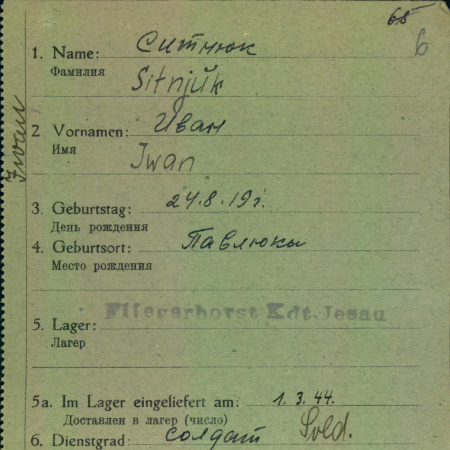 68
6
1. Name: Ситнюк
Фамилия
Sitnjuk
2 Vornamen: Иван
Имя
Iwan
Iwan
3. Geburtstag: 24.8.19г.
День рождения
4. Geburtsort: Павлюки
Место рождения
Fliegerhorst Kdt. Jesau
5. Lager:
Лагер
5a. Im Lager eingeliefert am: 1. 3. 44.
Доставлен в лагер (число)
6. Dienstgrad: солдат Sold.